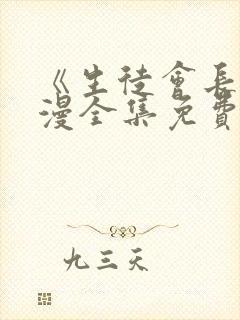 《生徒會長
漫全集免費
九三天